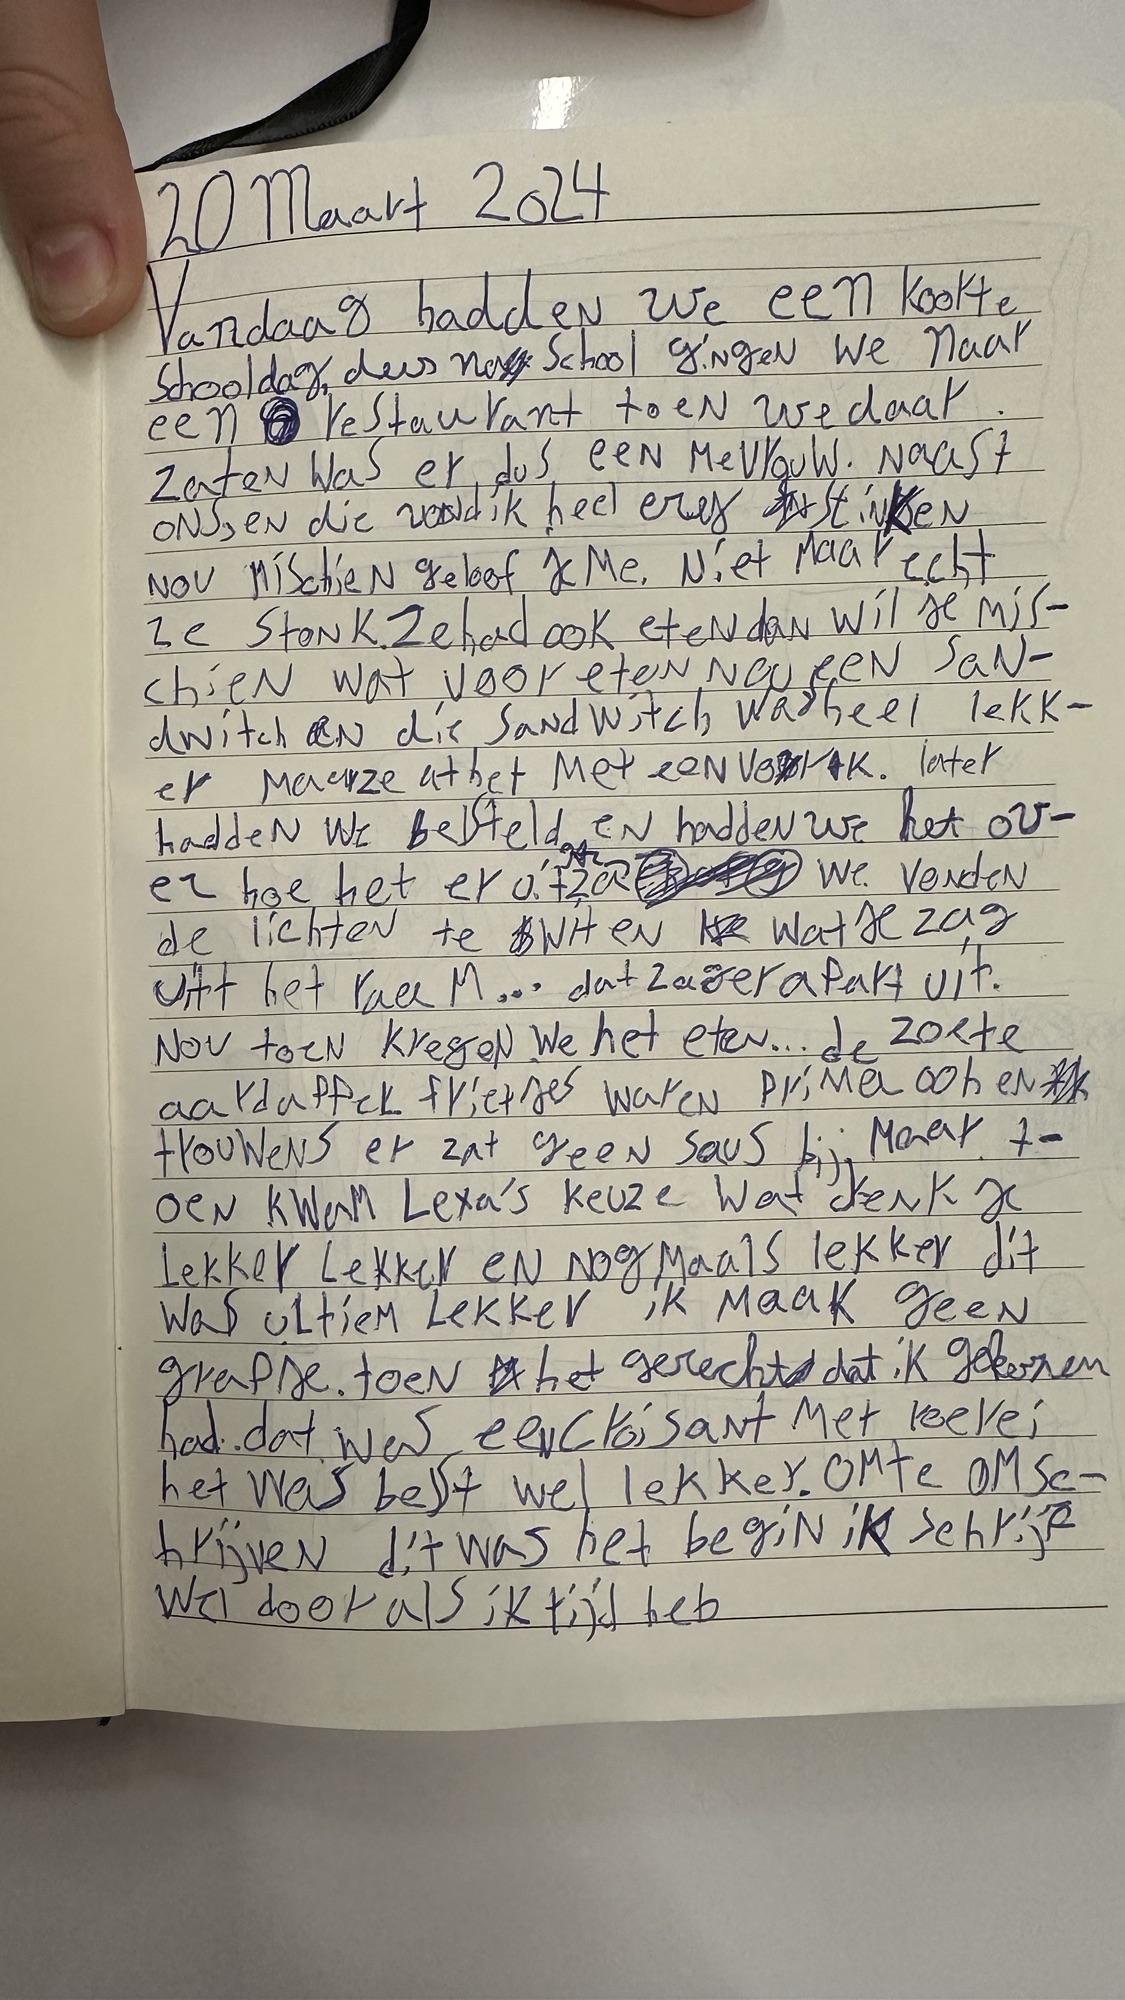 20 Maart 2024
Vandaag hadden we een kookte
schooldag, deus na school gingen we naar
een restaurant toen we daar.
zaten was er dus een mevrouw. naast
ons, en die vond ik heel erg stinken
nou mischien geloof je me. niet maar echt
ze stonk. Ze had ook eten dan wil je mis-
chien wat voor eten nou een san-
dwitch en die sandwitch was heel lekk-
er maar ze at het met een vork. later
hadden we besteld en hadden we het ov-
er hoe het er uit zag we vonden
de lichten te wit en wat je zag
uit het raam... dat zag er apart uit.
nou toen kregen we het eten... de zoete
aardappel frietjes waren prima ooh en
trouwens er zat geen saus bij. maar t-
oen kwam Lexa's keuze wat denk je
lekker lekker en nogmaals lekker dit
was ultiem lekker ik maak geen
grapje. toen het gerecht dat ik gekozen
had. dat was een croisant met roerei
het was best wel lekker. om te omsc-
hrijven dit was het begin ik schrijf
wel door als ik tijd heb